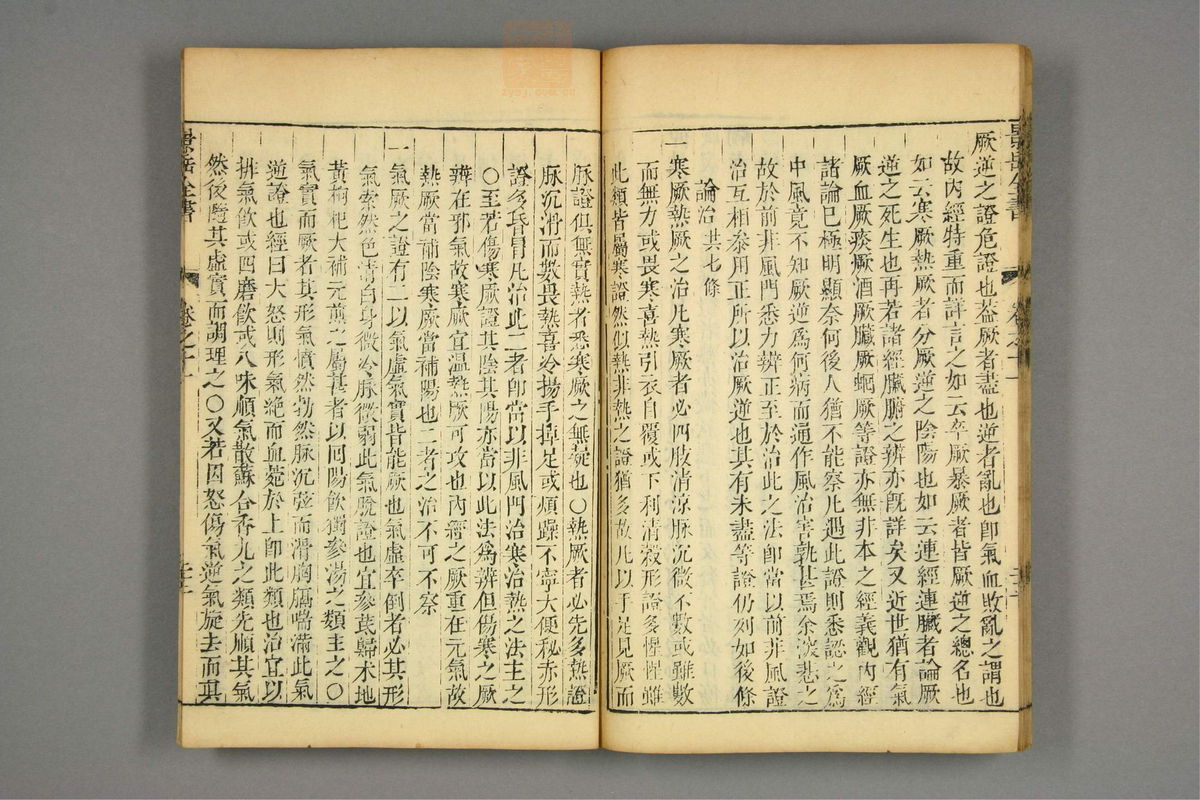 厥逆之證危證也葢厥者盡也逆者亂也卽氣血敗亂之謂也
故內經特重而詳言之如云卒厥暴厥者皆厥逆之總名也
如云寒厥熱厥者分厥逆之陰陽也如云連經連臟者論厥
逆之死生也再若諸經臟腑之辨亦旣詳矣又近世猶有氣
厥血厥痰厥酒厥臟厥蚘厥等證亦無非本之經義觀內經
諸論已極明顯奈何後人猶不能察凡遇此證則悉認之爲
中風竟不知厥逆爲何病而通作風治害孰甚焉余深悲之
故於前非風門悉力辨正至於治此之法卽當以前非風證
治互相叅用正所以治厥逆也其有未盡等證仍列如後條
論治共七條
一寒厥熱厥之治凡寒厥者必四肢清涼脉沉微不數或雖數
而無力或畏寒喜熱引衣自覆或下利清穀形證多惺惺雖
此類皆屬寒證然似熱非熱之證猶多故凡以手足見厥而
脉證俱無實熱者悉寒厥之無疑也○熱厥者必先多熱證
脉沉滑而數畏熱喜冷揚手掉足或煩躁不寧大便秘赤形
證多昏冒凡治此二者卽當以非風門治寒治熱之法主之
○至若傷寒厥證其陰其陽亦當以此法爲辨但傷寒之厥
辨在邪氣故寒厥宜溫熱厥可攻也內經之厥重在元氣故
熱厥當補陰寒厥當補陽也二者之治不可不察
一氣厥之證有二以氣虛氣實皆能厥也氣虛卒倒者必其形
氣索然色清白身微冷脉微弱此氣脫證也宜參芪歸术地
黃枸杞大補元煎之屬甚者以囘陽飲獨參湯之類主之○
氣實而厥者其形氣憤然勃然脉沉弦而滑胸膈喘滿此氣
逆證也經曰大怒則形氣絕而血菀於上卽此類也治宜以
排氣飲或四磨飲或八味順氣散蘇合香丸之類先順其氣
然後隨其虛實而調理之○又若因怒傷氣逆氣旋去而眞
景岳全書
卷之十一
景岳全書
卷之十一
zyoj.ouc.cn